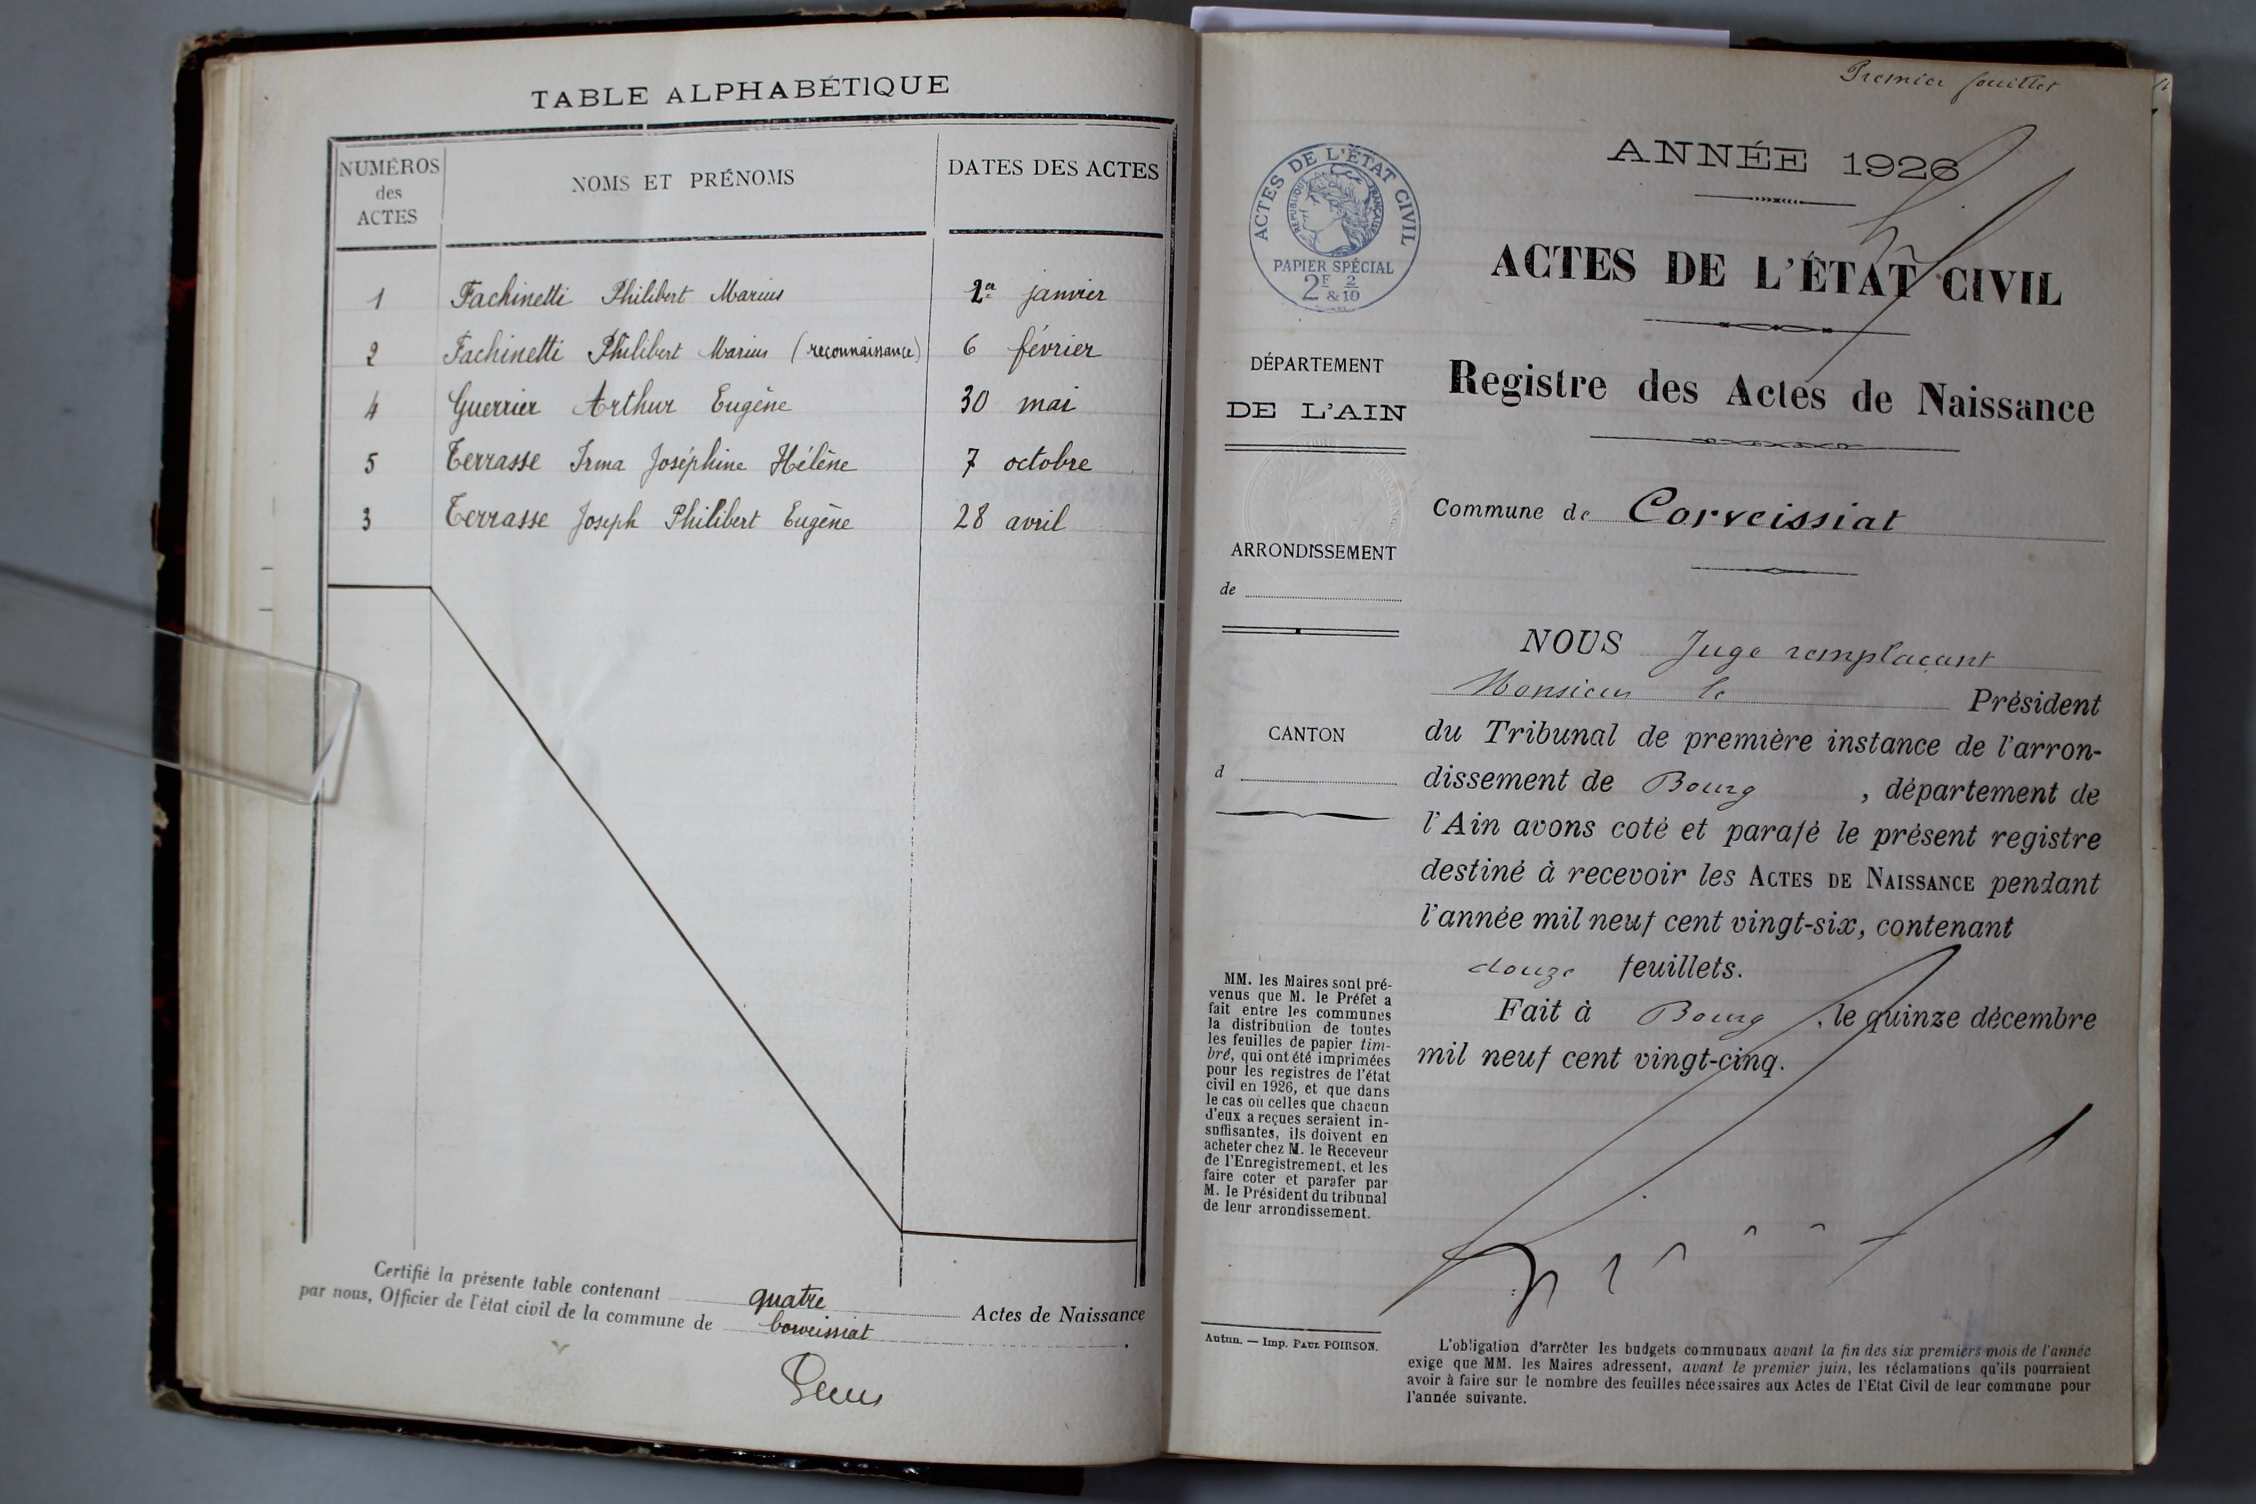 TABLE ALPHABÉTIQUE
NUMÉROS
des
ACTES
NOMS ET PRÉNOMS
DATES DES ACTES
1 Fachinetti Philibert Marius 1er janvier
2 Fachinetti Philibert Marius (reconnaissance) 6 février
4 Guerrier Arthur Eugène 30 mai
5 Terrasse Irma Joséphine Hélène 7 octobre
3 Terrasse Joseph Philibert Eugène 28 avril
Certifié la présente table contenant quatre Actes de Naissance
par nous, Officier de l'état civil de la commune de Corveissiat.
Premier feuillet
ACTES DE L'ÉTAT CIVIL
RÉPUBLIQUE FRANÇAISE
PAPIER SPÉCIAL
2F 2
& 10
DÉPARTEMENT
DE L'AIN
ARRONDISSEMENT
de
CANTON
d
MM. les Maires sont pré-
venus que M. le Préfet a
fait entre les communes
la distribution de toutes
les feuilles de papier tim-
bré, qui ont été imprimées
pour les registres de l'état
civil en 1926, et que dans
le cas où celles que chacun
d'eux a reçues seraient in-
suffisantes, ils doivent en
acheter chez M. le Receveur
de l'Enregistrement, et les
faire coter et parafer par
M. le Président du tribunal
de leur arrondissement.
Autun. — Imp. PAUL POIRSON.
ANNÉE 1926
ACTES DE L'ÉTAT CIVIL
Registre des Actes de Naissance
Commune de Corveissiat
NOUS Juge remplaçant
Monsieur le Président
du Tribunal de première instance de l'arron-
dissement de Bourg, département de
l'Ain avons coté et parafé le présent registre
destiné à recevoir les ACTES DE NAISSANCE pendant
l'année mil neuf cent vingt-six, contenant
douze feuillets.
Fait à Bourg, le quinze décembre
mil neuf cent vingt-cinq.
L'obligation d'arrêter les budgets communaux avant la fin des six premiers mois de l'année
exige que MM. les Maires adressent, avant le premier juin, les réclamations qu'ils pourraient
avoir à faire sur le nombre des feuilles nécessaires aux Actes de l'Etat Civil de leur commune pour
l'année suivante.